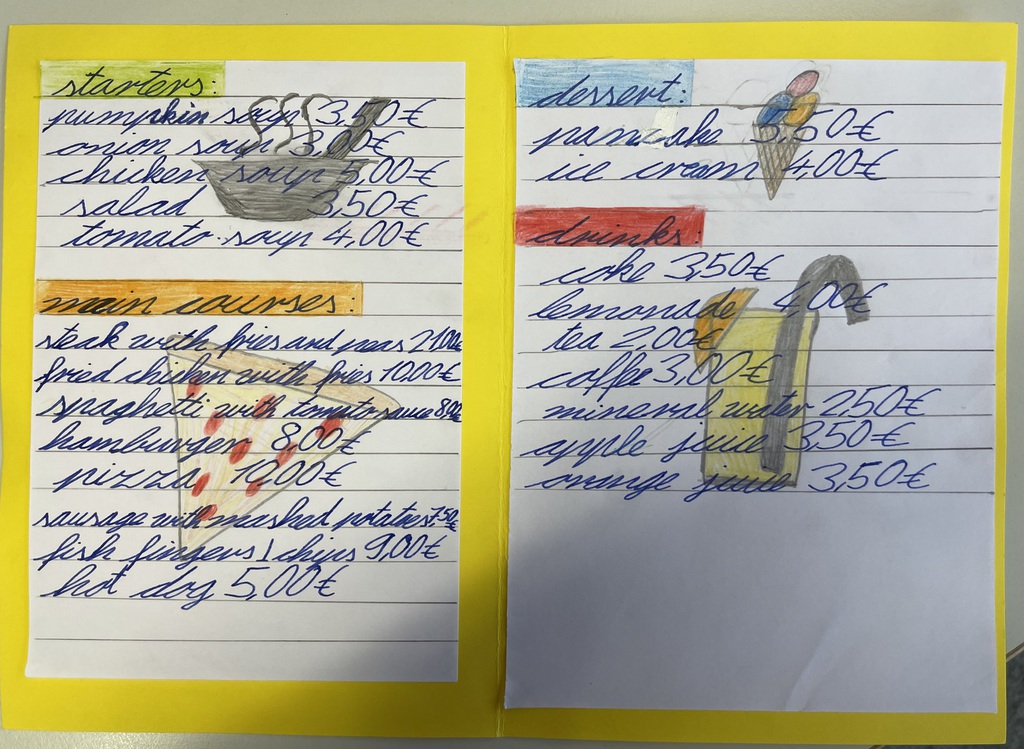 starters:
pumpkin soup 3,50€
onion soup 3,00€
chicken soup 5,00€
salad 3,50€
tomato soup 4,00€
main courses:
steak with fries and peas
fried chicken with fries 10,00€
spaghetti with tomato sauce 8,00
hamburger 8,00€
pizza 10,00€
sausage with mashed potatoes 7,50€
fish fingers / chips 9,00€
hot dog 5,00€
dessert:
pancake 3,50€
ice cream 4,00€
drinks:
coke 3,50€
lemonade 4,00€
tea 2,00€
coffee 3,00€
mineral water 2,50€
apple juice 3,50€
orange juice 3,50€